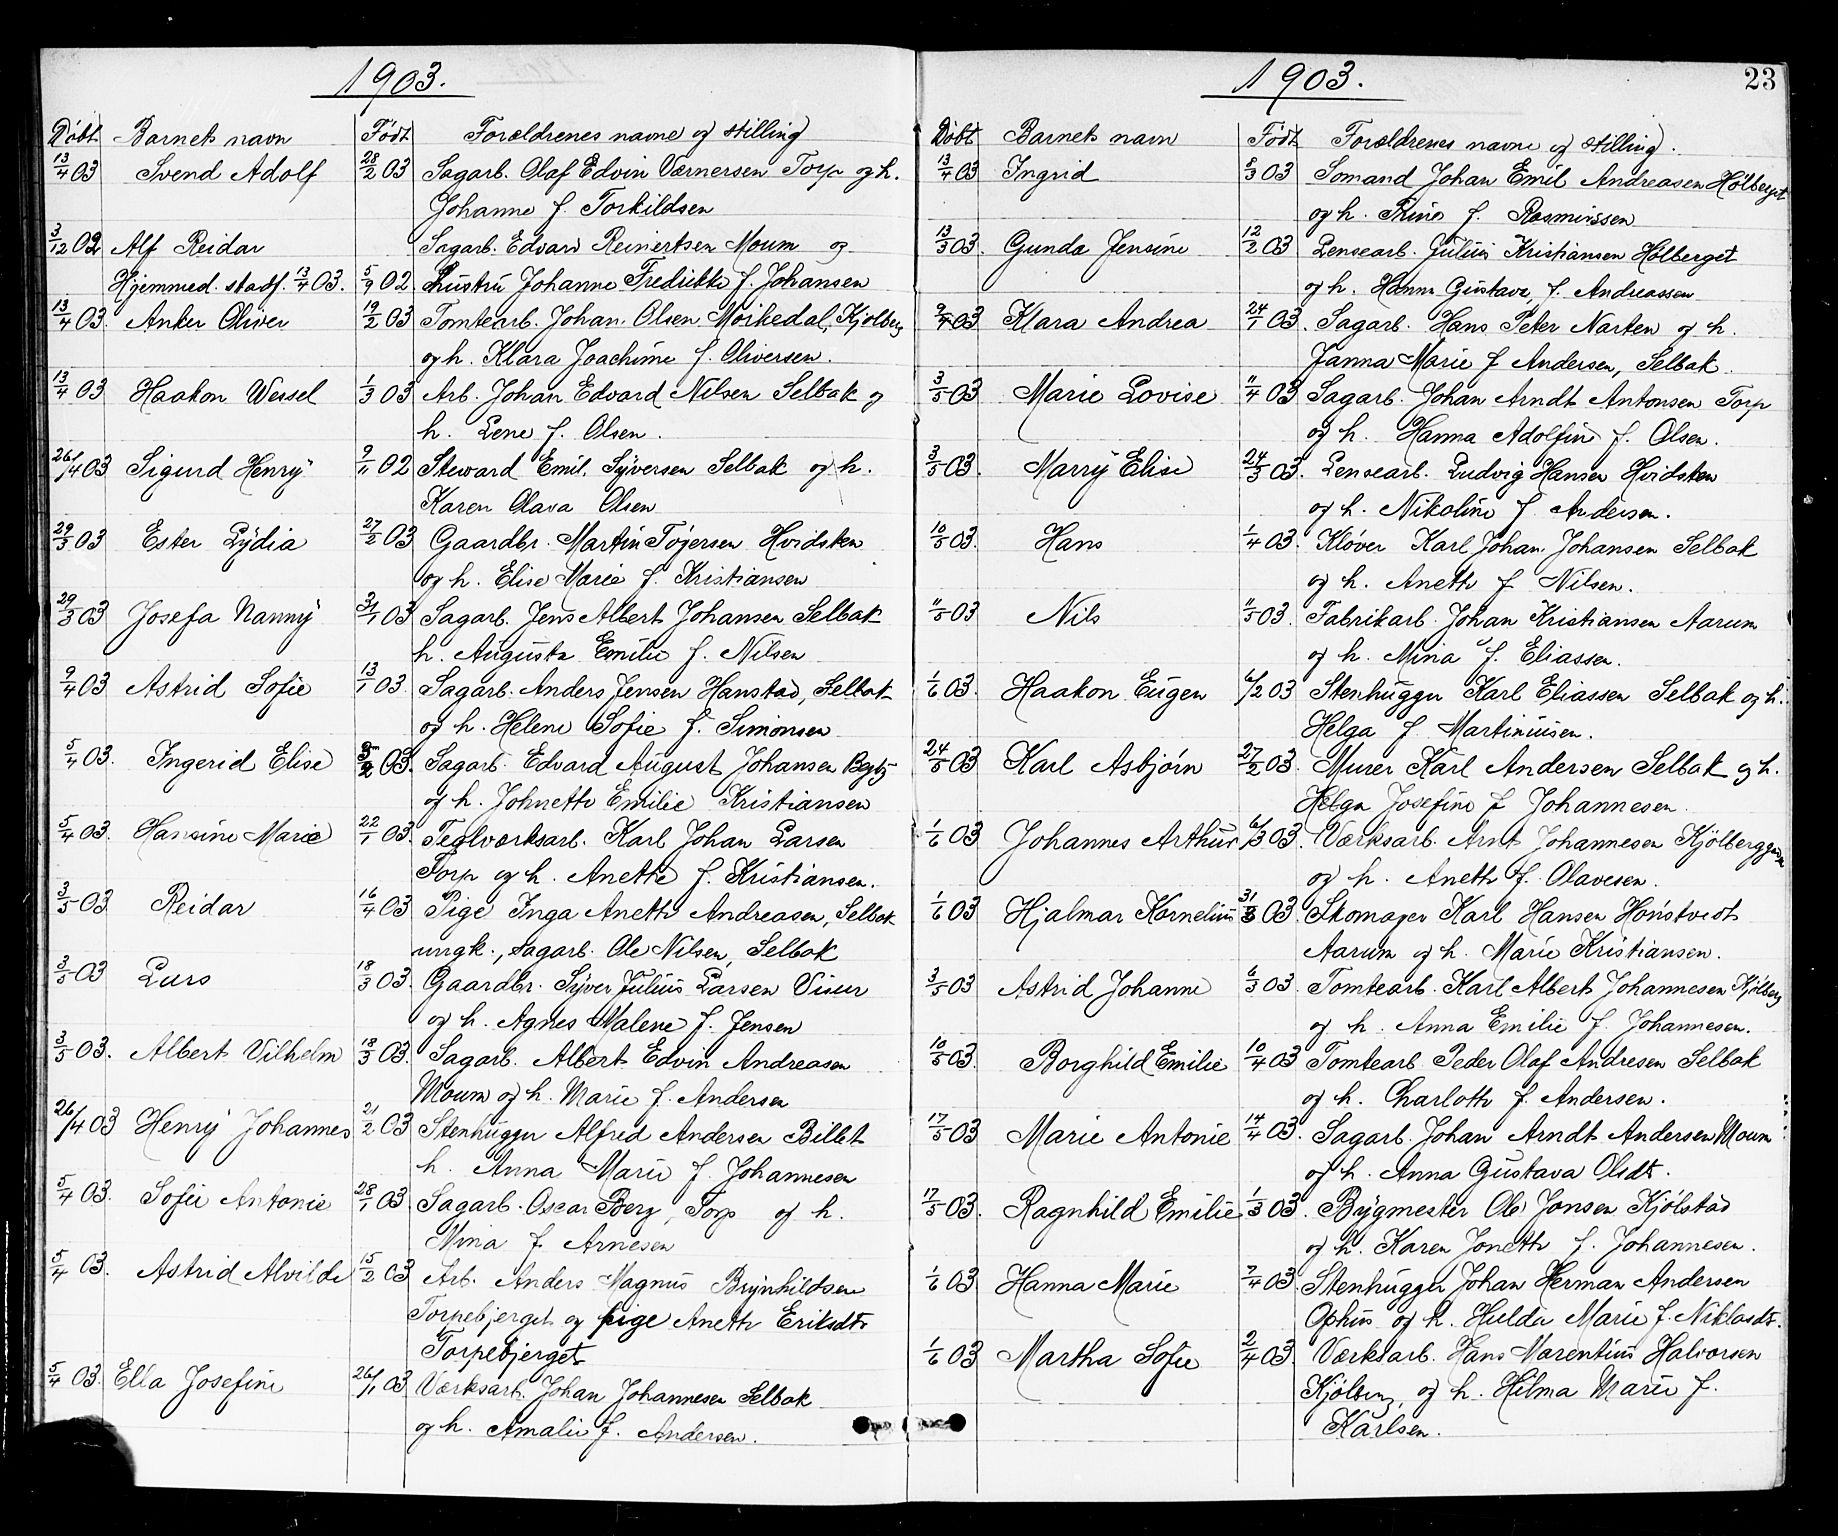 1903.
Döbt Barnets navn Födt Forældrenes navne og stilling
13/4 03 Svend Adolf 28/2 03 Sagarb. Olaf Edvin Værnersen Torp og h.
Johanne f. Torkildsen
3/12 02 Alf Reidar Sagarb. Edvard Reinertsen Moum og
Hjemmed. stadf. 13/4 03. 5/9 02 hustru Johanne Fredrikke f. Johansen
13/4 03. Anker Oliver 19/2 03 Tomtearb. Johan Olsen Moikedal, Kjølberg
og h. Klara Joachime f. Oliversen.
13/4 03 Haakon Wessel 1/3 03 Arb. Johan Edvard Nilsen Selbak og
h. Lene f. Olsen.
26/4 03 Sigurd Henry 9/11 02 Steward Emil Syversen Selbak og h.
Karen Olava Olsen
29/3 03 Ester Lydia 27/2 03 Gaardbr. Martin Töjersen Hvidsten
og h. Elise Marie f. Kristiansen
29/3 03 Josefa Nanny 31/1 03 Sagarb. Jens Albert Johansen Selbak
h. Augusta Emilie f. Nilsen
9/4 03 Astrid Sofie 13/1 03. Sagarb. Anders Jensen Hanstad, Selbak
og h. Helene Sofie f. Simonsen
5/4 03. Ingerid Elise 03. Sagarb. Edvard August Johansen Begby
og h. Johnette Emilie Kristiansen
5/4 03. Hansine Marie 22/1 03. Teglværksarb. Karl Johan Larsen
Torp og h. Anette f. Kristiansen.
3/5 03 Reidar 16/4 03 Pige Inga Anette Andreasen, Selbak
ungk., sagarb. Ole Nilsen, Selbak
3/5 03 Lars 18/3 03. Gaardbr. Syver Julius Larsen Viser
og h. Agnes Malene f. Jensen
3/5 03. Albert Vilhelm 18/3 03. Sagarb. Albert Edvin Andreasen
Moum og h. Marie f. Andersen
26/4 03 Henry Johannes 21/2 03 Stenhugger Alfred Andersen Billet
h. Anna Marie f. Johannesen
5/4 03. Sofie Antonie 28/1 03. Sagarb. Oscar Berg, Torp og h.
Mina f. Arnesen
5/4 03. Astrid Alvilde 15/2 03 Arb. Anders Magnus Brynhildsen
Torpebjerget og pige Anette Eriksdtr
Torpebjerget
5/4 03. Ella Josefine 26/1 03 Værksarb. Johan Johannesen Selbak
og h. Amalie f. Andersen.
1903. 23
Döbt Barnets navn Födt Forældrenes navne og stilling.
13/4 03 Ingrid 8/3 03 Sömand Johan Emil Andreasen Hölberget
og h. Trine f. Rasmussen
13/3 03. Gunda Jensine 12/2 03 Lensearb. Julius Kristiansen Hölberget
og h. Hanna Gustava, f. Andreassen
9/4 03 Klara Andrea 24/1 03. Sagarb. Hans Peter Narten og h.
Janna Marie f. Andersen, Selbak.
3/5 03 Marie Lovise 11/4 03 Sagarb. Johan Arndt Antonsen Torp
og h. Hanna Adolfine f. Olsen.
3/5 03. Marry Elise 24/3 03. Lensearb. Ludvig Hansen Hvidsten
og h. Nikoline f. Andersen.
10/5 03. Hans 1/4 03. Kløver Karl Johan Johansen Selbak
og h. Anette f Nilsen.
11/5 03 Nils 11/5 03. Fabrikarb. Johan Kristiansen Aarum
og h. Mina f. Eliassen.
1/6 03. Haakon Eugen 6/2 03 Stenhugger Karl Eliassen Selbak og h.
Helga f Martiniusen.
24/5 03 Karl Asbjørn 27/2 03. Murer Karl Andersen Selbak og h.
Helga Josefine f Johannesen.
1/6 03 Johannes Arthur 6/3 03. Værksarb. Arnt Johannesen Kjölberggaden
og h. Anette f. Olavesen.
1/6 03 Hjalmar Kornelius 31/3 03 Skomager Karl Hansen Hönstvedt
Aarum og h. Marie Kristiansen.
3/5 03 Astrid Johanne 6/3 03. Tomtearb. Karl Albert Johannesen Kjölberg
og h. Anna Emilie f. Johannesen.
10/5 03. Borghild Emilie 10/4 03 Tomtearb Peder Olaf Andresen Selbak
og h. Charlotte f. Andersen.
17/5 03 Marie Antonie 14/4 03. Sagarb. Johan Arndt Andersen Moum
og h. Anna Gustava Olsdt.
17/5 03. Ragnhild Emilie 1/3 03. Bygmester Ole Jonsen Kjölstad
og h. Karen Jonette f. Johannesen.
1/6 03 Hanna Marie 7/4 03. Stenhugger Johan Herman Andersen
Ophus og h. Hulda Marie f. Niklasdt.
1/6 03 Martha Sofie 2/4 03. Værksarb. Hans Marentius Halvorsen
Kjölberg, og h. Hilma Marie f.
Karlsen.